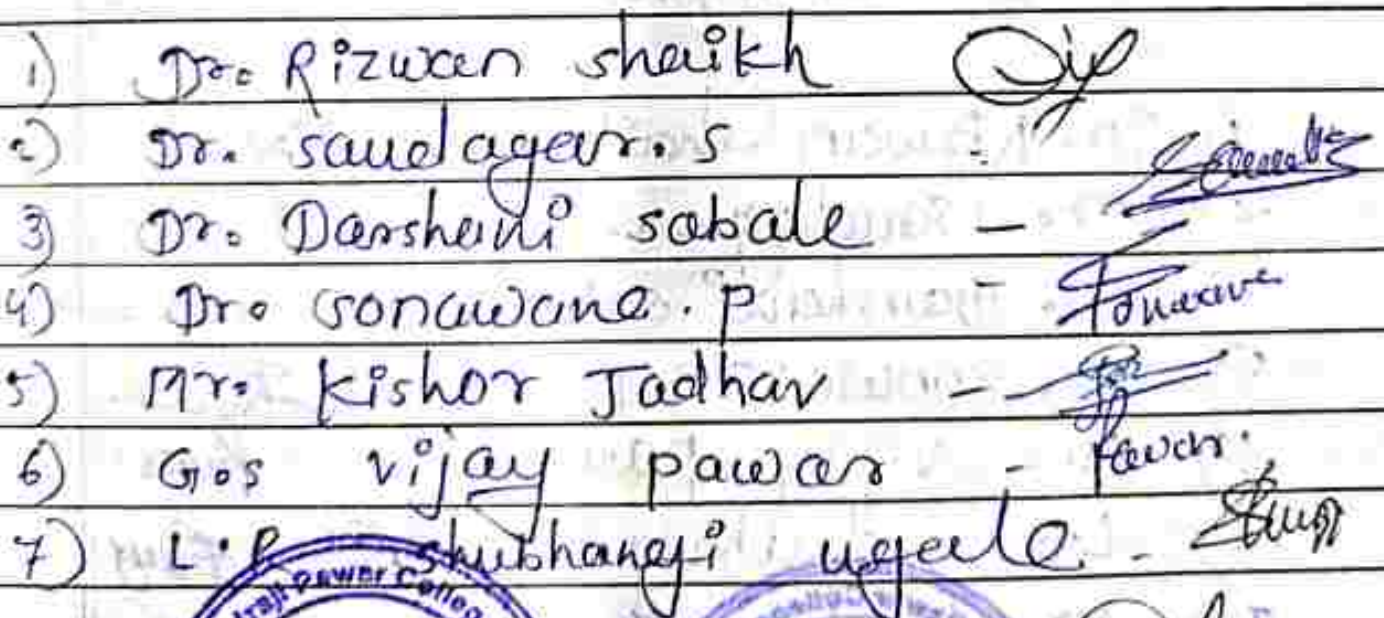 1) Dr. Rizwan shaikh
2) Dr. saudagar.s -
3) Dr. Darshani sabale -
4) Dr. sonawane. P -
5) Mr. Kishor Jadhav -
6) G.S vijay pawar - Pawar.
7) L.R shubhangi ugale. -
raji Pawar Colleg